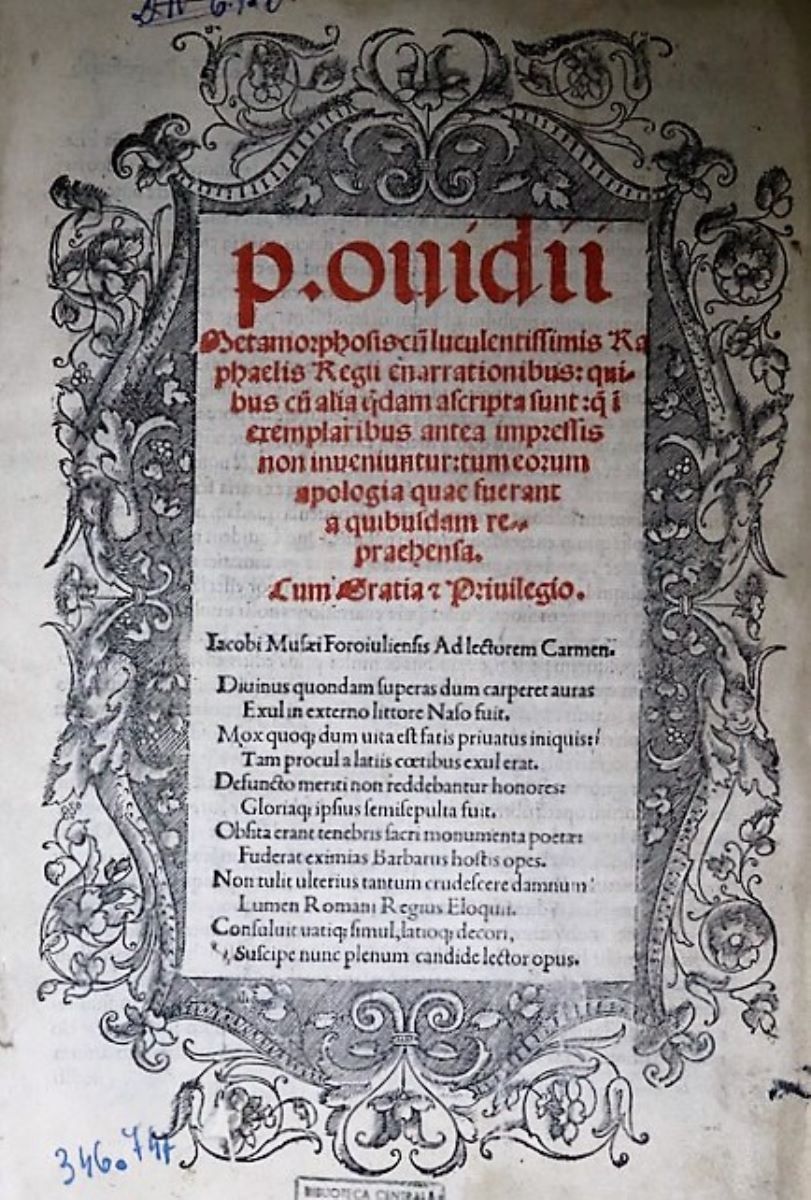 p.ouidii
Metamorphosis cū luculentissimis Ra
phaelis Regii enarrationibus: qui-
bus cū alia q̄dam ascripta sunt: q̄ ī
exemplaribus antea impressis
non inveniuntur: tum eorum
apologia quae fuerant
a quibusdam re-
praehensa.
Cum Gratia ⁊ Priuilegio.
Iacobi Musæi Foroiuliensis Ad lectorem Carmen.
Diuinus quondam superas dum carperet auras
Exul in externo littore Naso fuit.
Mox quoq; dum uita est fatis priuatus iniquis:
Tam procul a latiis cœtibus exul erat.
Defuncto meriti non reddebantur honores:
Gloriaq; ipsius semisepulta fuit.
Obsita erant tenebris sacri monumenta poetæ:
Fuderat eximias Barbarus hostis opes.
Non tulit ulterius tantum crudescere damnum
Lumen Romani Regius Eloquii.
Consuluit uatiq; simul, latioq; decori,
Suscipe nunc plenum candide lector opus.
346.747
BIBLIOTECA CENTRALA